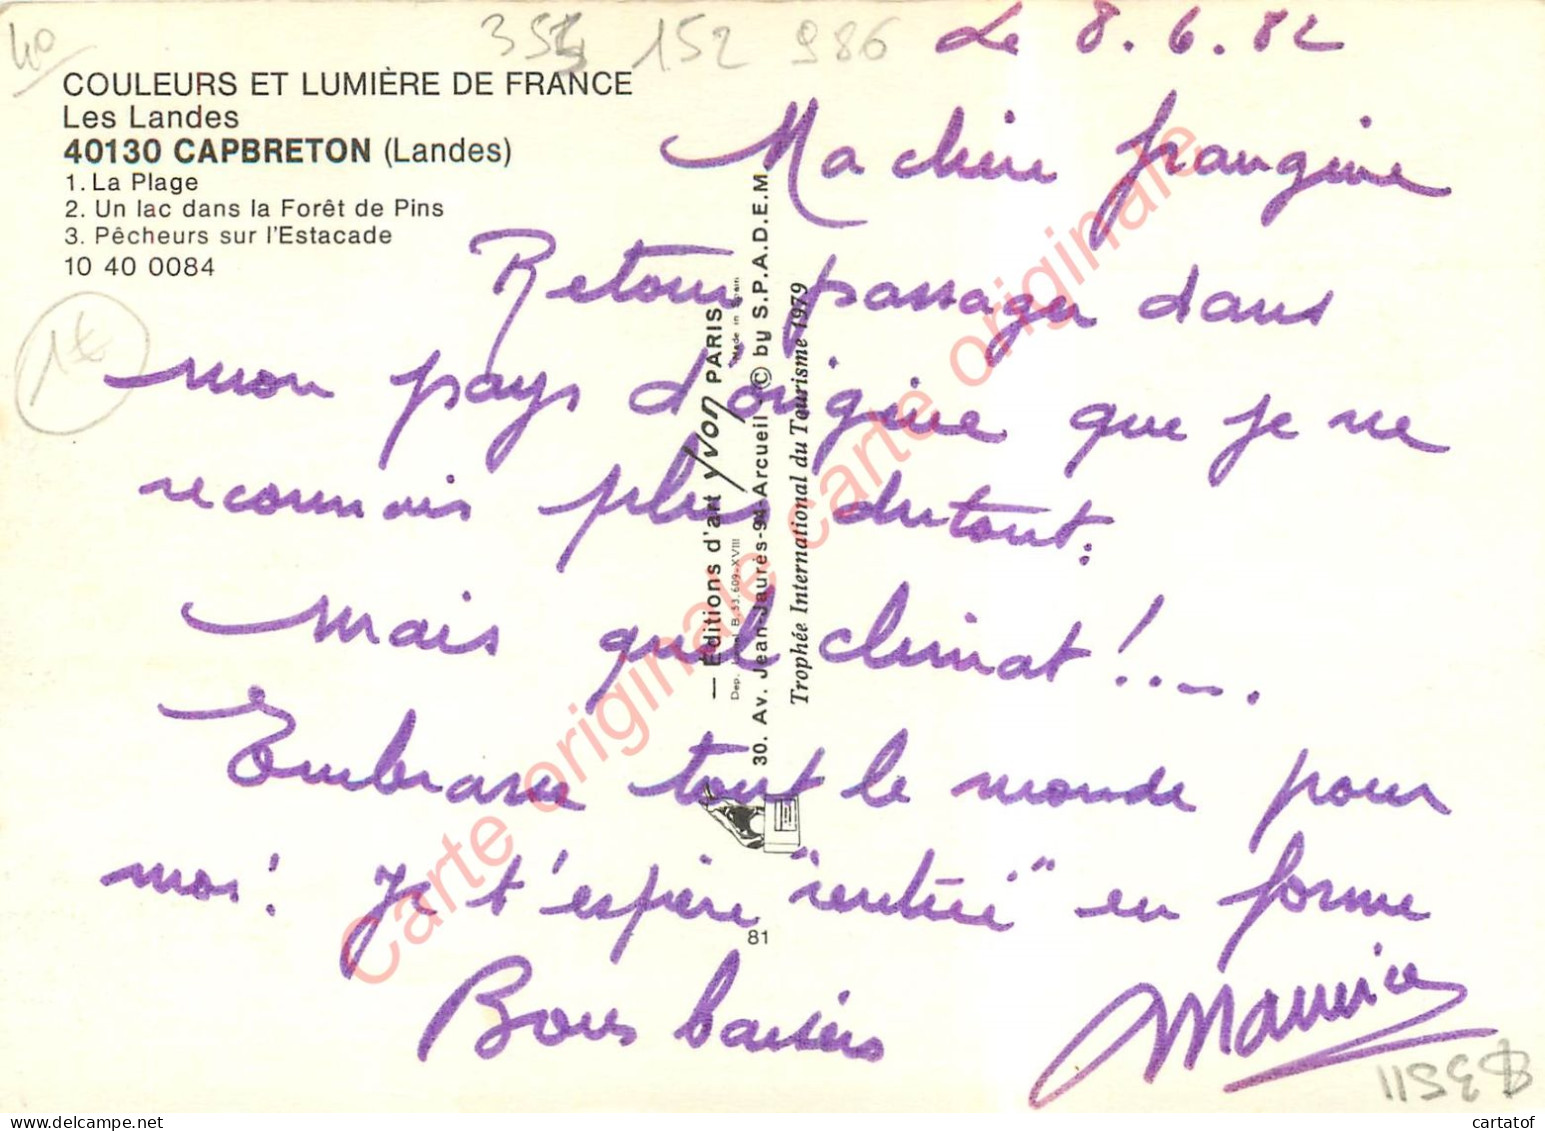 40
354 152 986
Le 8.6.82
COULEURS ET LUMIÈRE DE FRANCE
Les Landes
40130 CAPBRETON (Landes)
1. La Plage
2. Un lac dans la Forêt de Pins
3. Pêcheurs sur l'Estacade
10 40 0084
1€
Ma chère frangine
Retour passager dans
mon pays d'origine que je ne
reconnais plus du tout.
Mais quel climat !....
Embrasse tout le monde pour
moi ! Je t'espère "rentrée" en forme
Bons baisers
Maurice
— Editions d'art yvon PARIS
Made in Spain
Dep. Legal B. 33.609-XVIII
30. Av. Jean-Jaurès-94-Arcueil © by S.P.A.D.E.M.
Trophée International du Tourisme 1979
81
B3511
Carte originale carte originale
cartatof